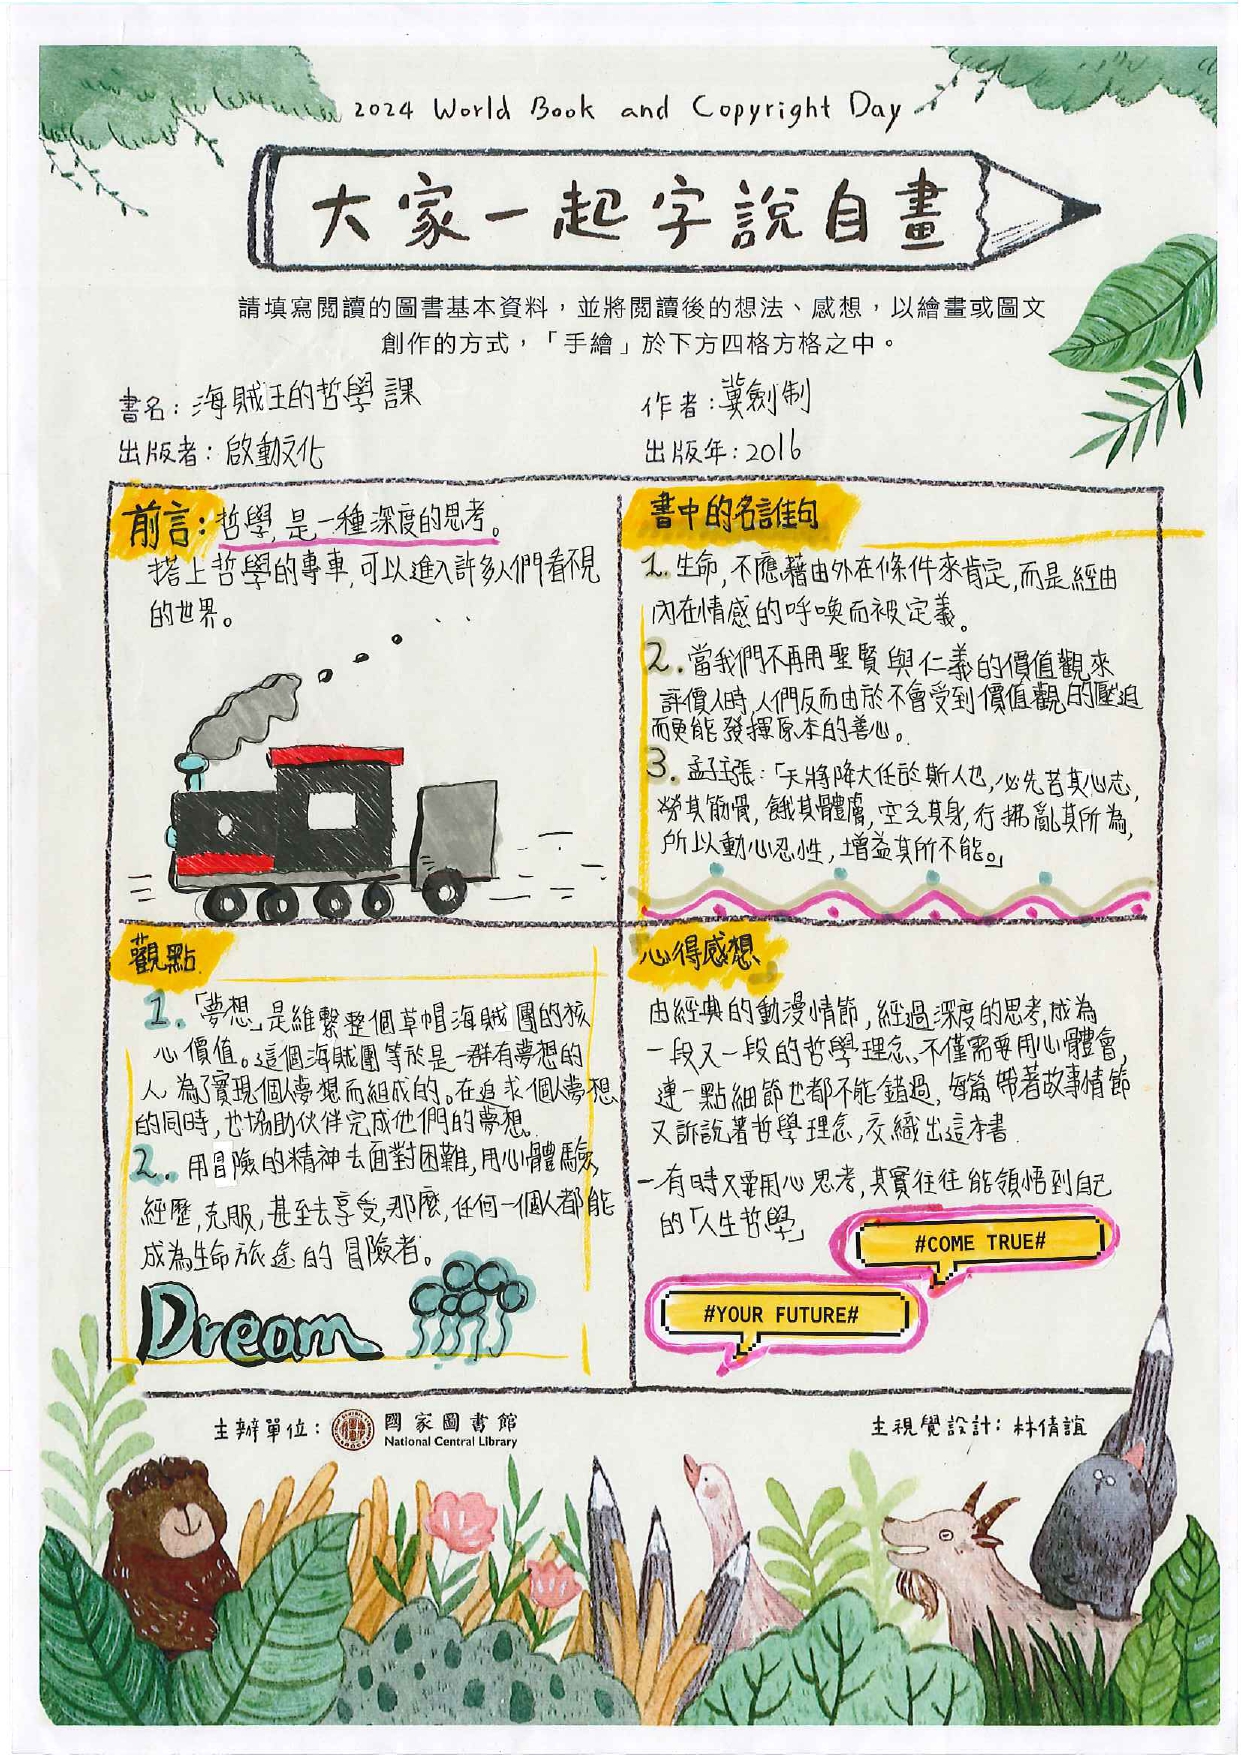 2024 World Book and Copyright Day
大家一起字說自畫
請填寫閱讀的圖書基本資料，並將閱讀後的想法、感想，以繪畫或圖文
創作的方式，「手繪」於下方四格方格之中。
書名：海賊王的哲學課
作者：冀劍制
出版者：啟動文化
出版年：2016
前言：哲學，是一種深度的思考。
搭上哲學的專車，可以進入許多人們看不見
的世界。
書中的名言佳句
1. 生命，不應藉由外在條件來肯定，而是經由
內在情感的呼喚而被定義。
2. 當我們不再用聖賢與仁義的價值觀來
評價人時，人們反而由於不會受到價值觀的壓迫
而更能發揮原本的善心。
3. 孟子主張：「天將降大任於斯人也，必先苦其心志，
勞其筋骨，餓其體膚，空乏其身，行拂亂其所為，
所以動心忍性，增益其所不能。」
觀點
1. 「夢想」是維繫整個草帽海賊團的核
心價值。這個海賊團等於是一群有夢想的
人為了實現個人夢想而組成的。在追求個人夢想
的同時，也協助伙伴完成他們的夢想。
2. 用冒險的精神去面對困難，用心體驗，
經歷，克服，甚至去享受，那麼，任何一個人都能
成為生命旅途的冒險者。
Dream
心得感想
由經典的動漫情節，經過深度的思考，成為
一段又一段的哲學理念，不僅需要用心體會，
連一點細節也都不能錯過，每篇帶著故事情節
又訴說著哲學理念，交織出這本書
一有時又要用心思考，其實往往能領悟到自己
的「人生哲學」
#COME TRUE#
#YOUR FUTURE#
主辦單位：國家圖書館
National Central Library
主視覺設計：林倩誼